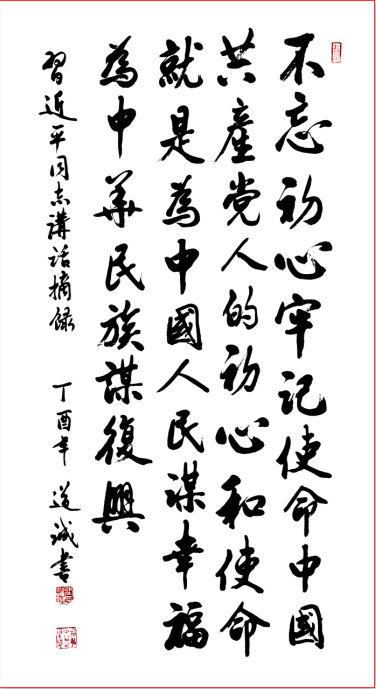 不忘初心牢记使命中國
共產党人的初心和使命
就是為中國人民謀幸福
為中華民族謀復興
習近平同志講话摘録 丁酉年 道誠書